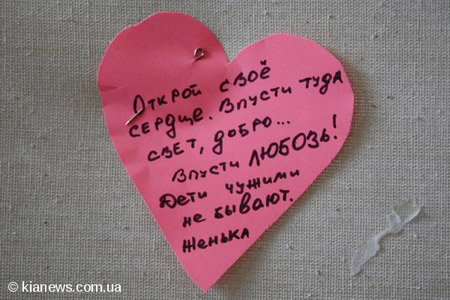 Открой своё
сердце. Впусти туда
свет, добро...
Впусти ЛЮБОВЬ!
Дети чужими
не бывают.
Женька
© kianews.com.ua